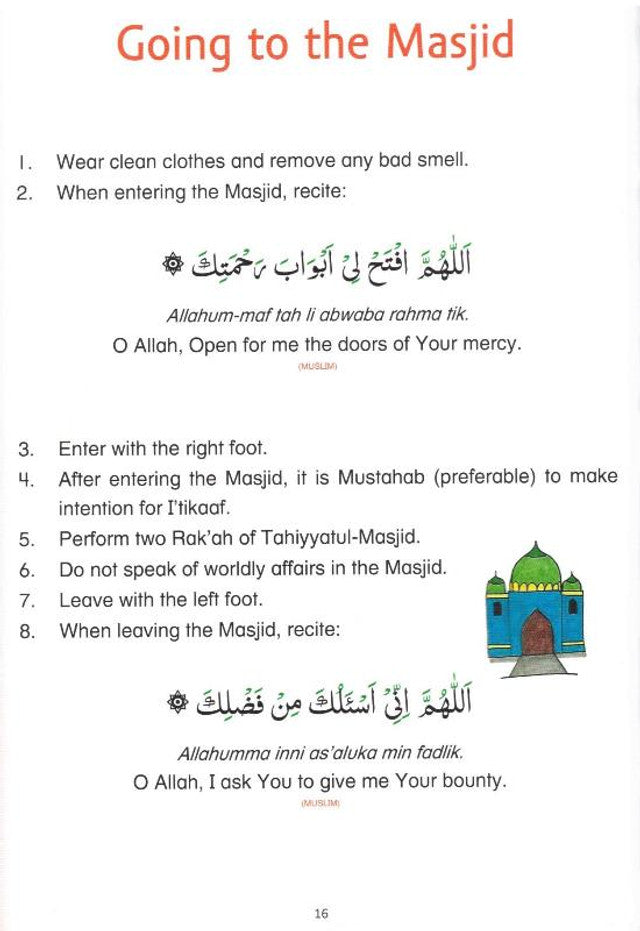 Going to the Masjid
1. Wear clean clothes and remove any bad smell.
2. When entering the Masjid, recite:
اَللّٰهُمَّ افْتَحْ لِيْ اَبْوَابَ رَحْمَتِكَ ۞
Allahum-maf tah li abwaba rahma tik.
O Allah, Open for me the doors of Your mercy.
(MUSLIM)
3. Enter with the right foot.
4. After entering the Masjid, it is Mustahab (preferable) to make
intention for I'tikaaf.
5. Perform two Rak'ah of Tahiyyatul-Masjid.
6. Do not speak of worldly affairs in the Masjid.
7. Leave with the left foot.
8. When leaving the Masjid, recite:
اَللّٰهُمَّ اِنِّيْ اَسْئَلُكَ مِنْ فَضْلِكَ ۞
Allahumma inni as'aluka min fadlik.
O Allah, I ask You to give me Your bounty.
(MUSLIM)
16